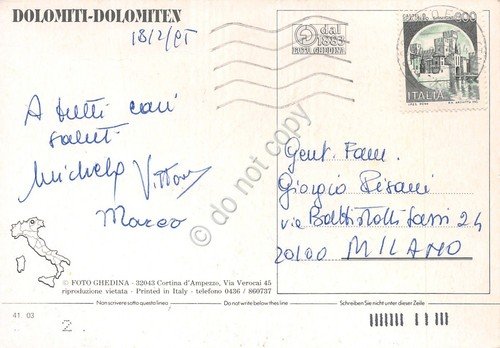 DOLOMITI-DOLOMITEN
18/2/95
dal
1883
FOTO GHEDINA
600
ITALIA
A tutti cari
saluti
Michela Vittorio
Marco
Gent. Fam.
Giorgio Pisani
via Battistotti Sassi 24
20100 MILANO
do not copy
© FOTO GHEDINA - 32043 Cortina d'Ampezzo, Via Verocai 45
riproduzione vietata - Printed in Italy - telefono 0436 / 860737
Non scrivere sotto questa linea
Do not write below thes line
Schreiben Sie nicht unter dieser Zeile
41 03
2